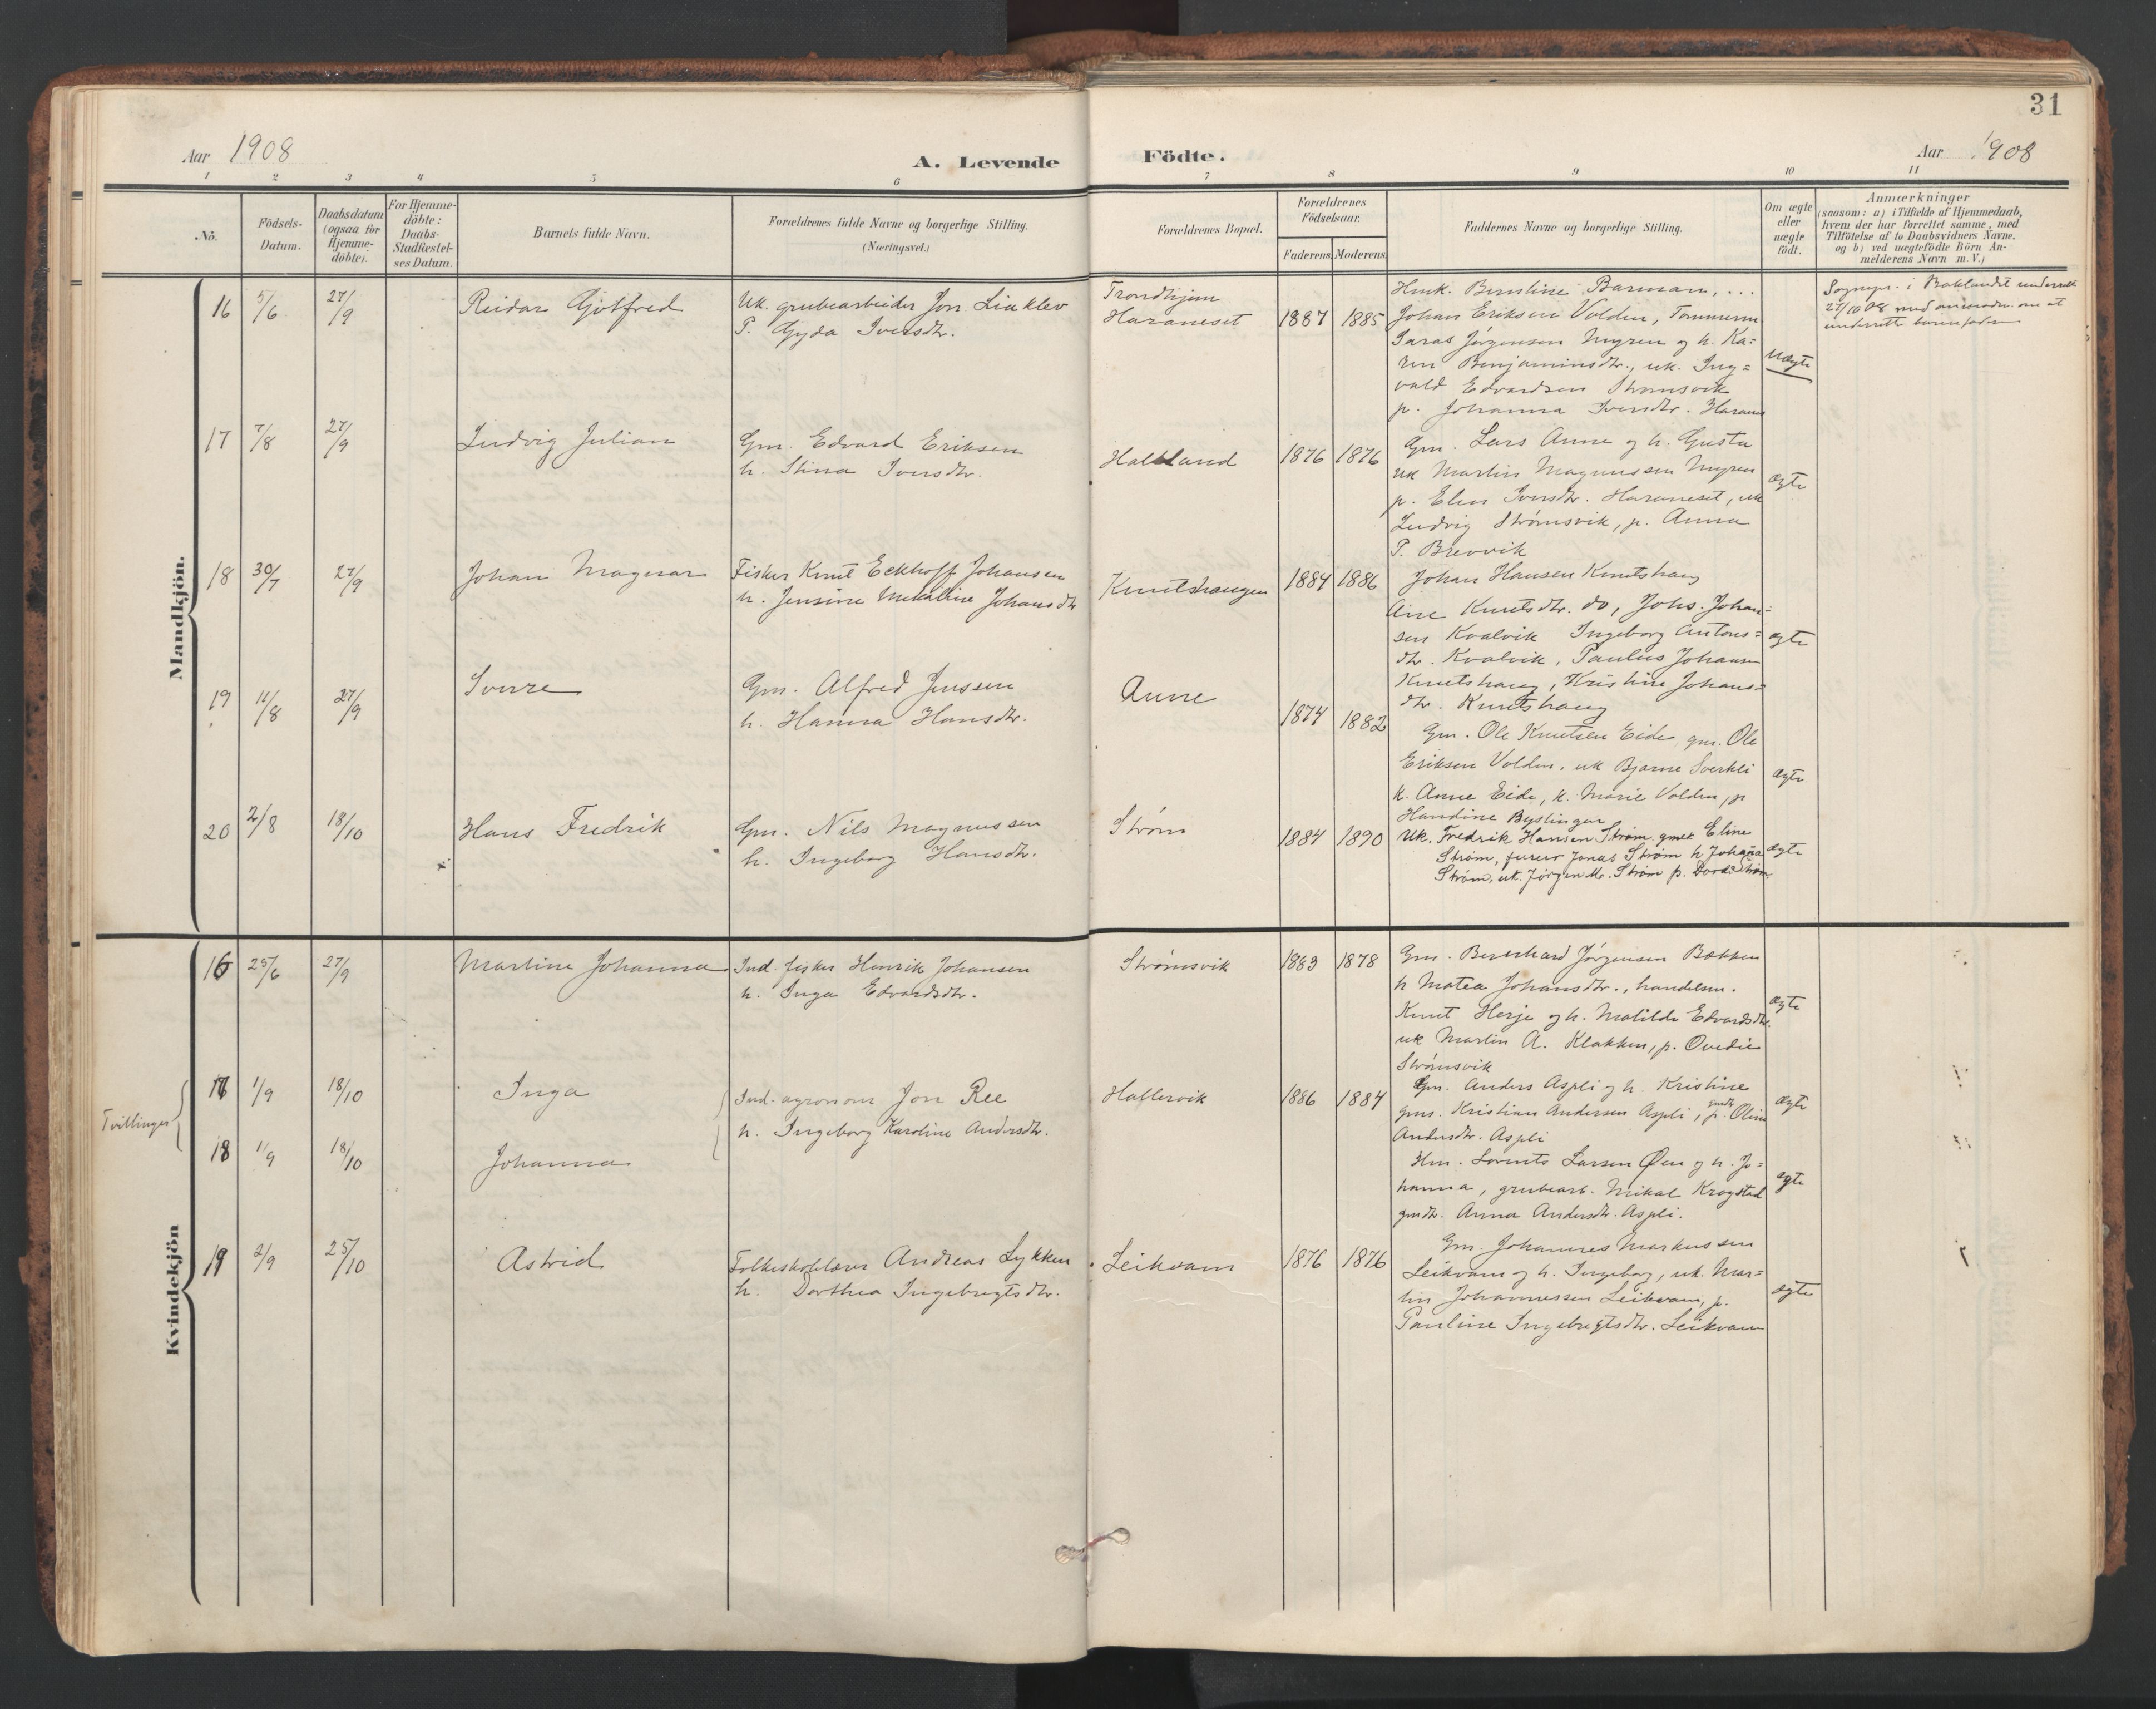 31
Aar 1908
A. Levende Födte.
Aar 1908
1 2 3 4 5 6 7 8 9 10 11
No.
Födsels-
Datum.
Daabsdatum
(ogsaa for
Hjemme-
döbte).
For Hjemme-
döbte:
Daabs-
Stadfæstel-
ses Datum.
Barnets fulde Navn.
Forældrenes fulde Navne og borgerlige Stilling.
(Næringsvei.)
Forældrenes Bopæl.
Forældrenes
Födselsaar.
Faderens Moderens
Faddernes Navne og borgerlige Stilling.
Om ægte
eller
uægte
födt.
Anmærkninger
(saasom: a) i Tilfælde af Hjemmedaab,
hvem der har forrettet samme, med
Tilföielse af to Daabsvidners Navne.
og b) ved uægtefödte Börn An-
melderens Navn m. V.)
Mandkjön.
16 5/6 27/9 Reidar Gjotfred
Uk. grubearbeider Jon Liaklev
P. Gyda Iversdtr.
Trondhjem
Haraneset
1887 1885
Husk. Berntine Barman, ...
Johan Eriksen Volden, Tømmerm
Jørgensen Myren og h. Ka=
ren Benjaminsdtr., uk. Ing=
vald Edvardsen Strømsvik
p. Johanna Iversdtr. Haranes
Uægte
Sognepr. i Baklandet underrett
27/10 08 med anmodn. om at
underrette barnefaderen
17 7/8 27/9 Ludvig Julian
Gm. Edvard Eriksen
h. Stina Iversdtr.
Haltland
1876 1876
Gm. Lars Aune og h. Gusta
uk Martin Magnussen Myren
p. Elen Iversdtr. Haraneset, uk
Ludvig Strømsvik, p. Anna
P. Brevvik
ægte
18 30/7 27/9 Johan Magnar
Fisker Knut Eckhoff Johansen
h. Jensine Mekaline Johansdtr
Knutshaugen
1884 1886
Johan Hansen Knutshaug
Ane Knutsdtr. do, Johs. Johan=
sen Kvalvik Ingeborg Antons=
dtr. Kvalvik, Paulus Johansen
Knutshaug, Kristine Johans=
dtr. Knutshaug
ægte
19 11/8 27/9 Sverre
Gm. Alfred Jenssen
h. Hanna Hansdtr.
Aune
1874 1882
Gm. Ole Knutsen Eide, gm. Ole
Eriksen Volden, uk Bjarne Sverkli
k. Anne Eide, k. Marie Volden, p
Handine Byslingen
ægte
20 2/8 18/10 Hans Fredrik
Gm. Nils Magnussen
h. Ingeborg Hansdtr.
Strøm
1884 1890
Uk. Fredrik Hansen Strøm, gmek Eline
Strøm, furer Jonas Strøm h Johanna
Strøm, uk. Jørgen M. Strøm p. Dord. Strøm
ægte
Kvindekjön
16 25/6 27/9 Martine Johanna
Ind. fisker Henrik Johansen
h. Inga Edvardsdtr.
Strømsvik
1883 1878
Gm. Bernhard Jørgensen Bakken
h Matea Johansdtr., handelsm.
Knut Herje og h. Matilde Edvardsdtr.
uk Martin A. Klakken, p. Ovedie
Strømsvik
ægte
Tvillinger
17 1/9 18/10 Inga
Ind. agronom Jon Ree
h. Ingeborg Karoline Andersdtr.
Hallervik
1886 1884
Gm. Anders Aspli og h. Kristine
gms. Kristian Andersen Aspli, gmdtr. p. Oline
Andersdtr. Aspli
ægte
18 1/9 18/10 Johanna
Hm. Lorents Larsen Øen og h. Jo=
hanna, grubearb. Mikal Kragsted
gmdtr. Anna Andersdtr. Aspli.
ægte
19 2/9 25/10 Astrid
Folkeskolelærer Andreas Lykken
h. Dorthea Ingebrigtsdtr.
Leikvam
1876 1876
Gm. Johannes Markussen
Leikvam og h. Ingeborg, uk. Mar=
tin Johannessen Leikvam, p.
Pauline Ingebrigtsdtr. Leikvam
ægte